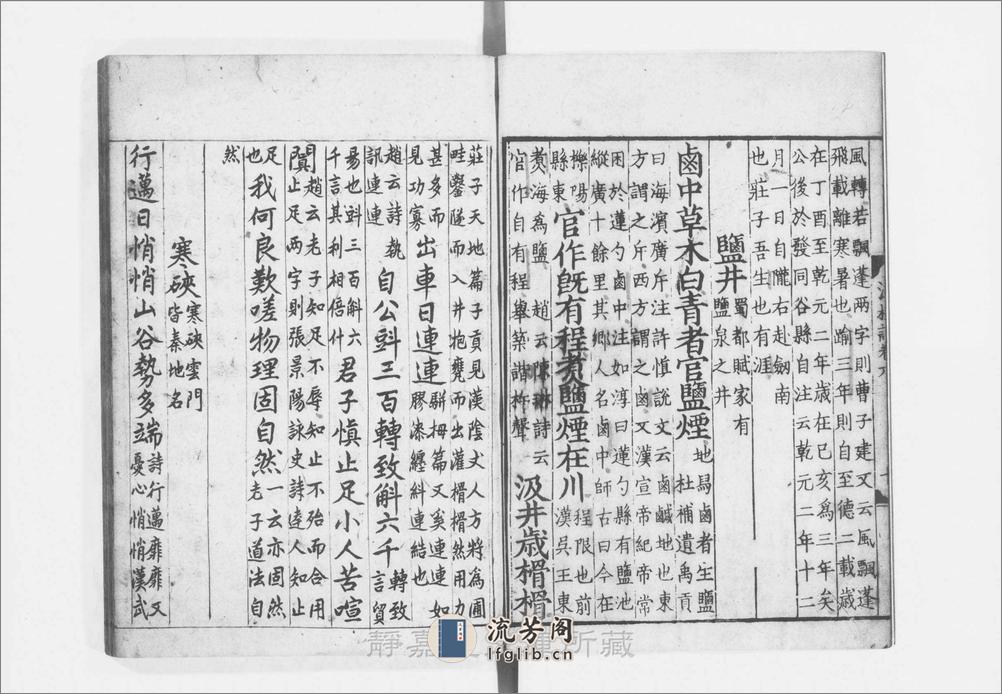 風轉若飄蓬兩字則曹子建又云風飄蓬
飛載離寒暑也踰三年則自至德二載歲
在丁酉至乾元二年歲在已亥爲三年矣
公後於發同谷縣自注云乾元二年十二
月一日自隴右赴劔南
也莊子吾生也有涯
鹽井蜀都賦家有
鹽泉之井
鹵中草木白青者官鹽煙地昜鹵者生鹽
杜補遺禹貢
曰海濱廣斥注許慎説文云鹵鹹地也東
方謂之斥西方謂之鹵又漢宣帝紀帝常
困於蓮勺鹵中注如淳曰蓮勺縣有鹽池
縱廣十餘里其鄉人名鹵中師古曰今在
櫟陽
縣東官作旣有程煮鹽煙在川程限也前
漢吳王東
煑海爲鹽 趙云陳琳詩云
官作自有程舉築諧杵聲汲井歲榾榾
莊子天地篇子貢見漢陰丈人方將爲圃
畦鑿隧而入井抱甕而出灌榾榾然用力
甚多而
見功寡出車日連連駢拇篇又奚連連如
膠漆纆糾連連結也
趙云詩執
訊連連自公斗三百轉致斛六千轉致
言貿
昜也斗三百斛六
千言其利相倍什君子慎止足小人苦喧
闐趙云老子知足不辱知止不殆而合用
闐止足兩字則張景陽詠史詩達人知止
足
也我何良歎嗟物理固自然一云亦固然
老子道法自
然
寒硤寒硤雲門
皆秦地名
行邁日悄悄山谷勢多端詩行邁靡靡又
憂心悄悄漢武
靜嘉 所藏
流芳阁
lfglib.cn